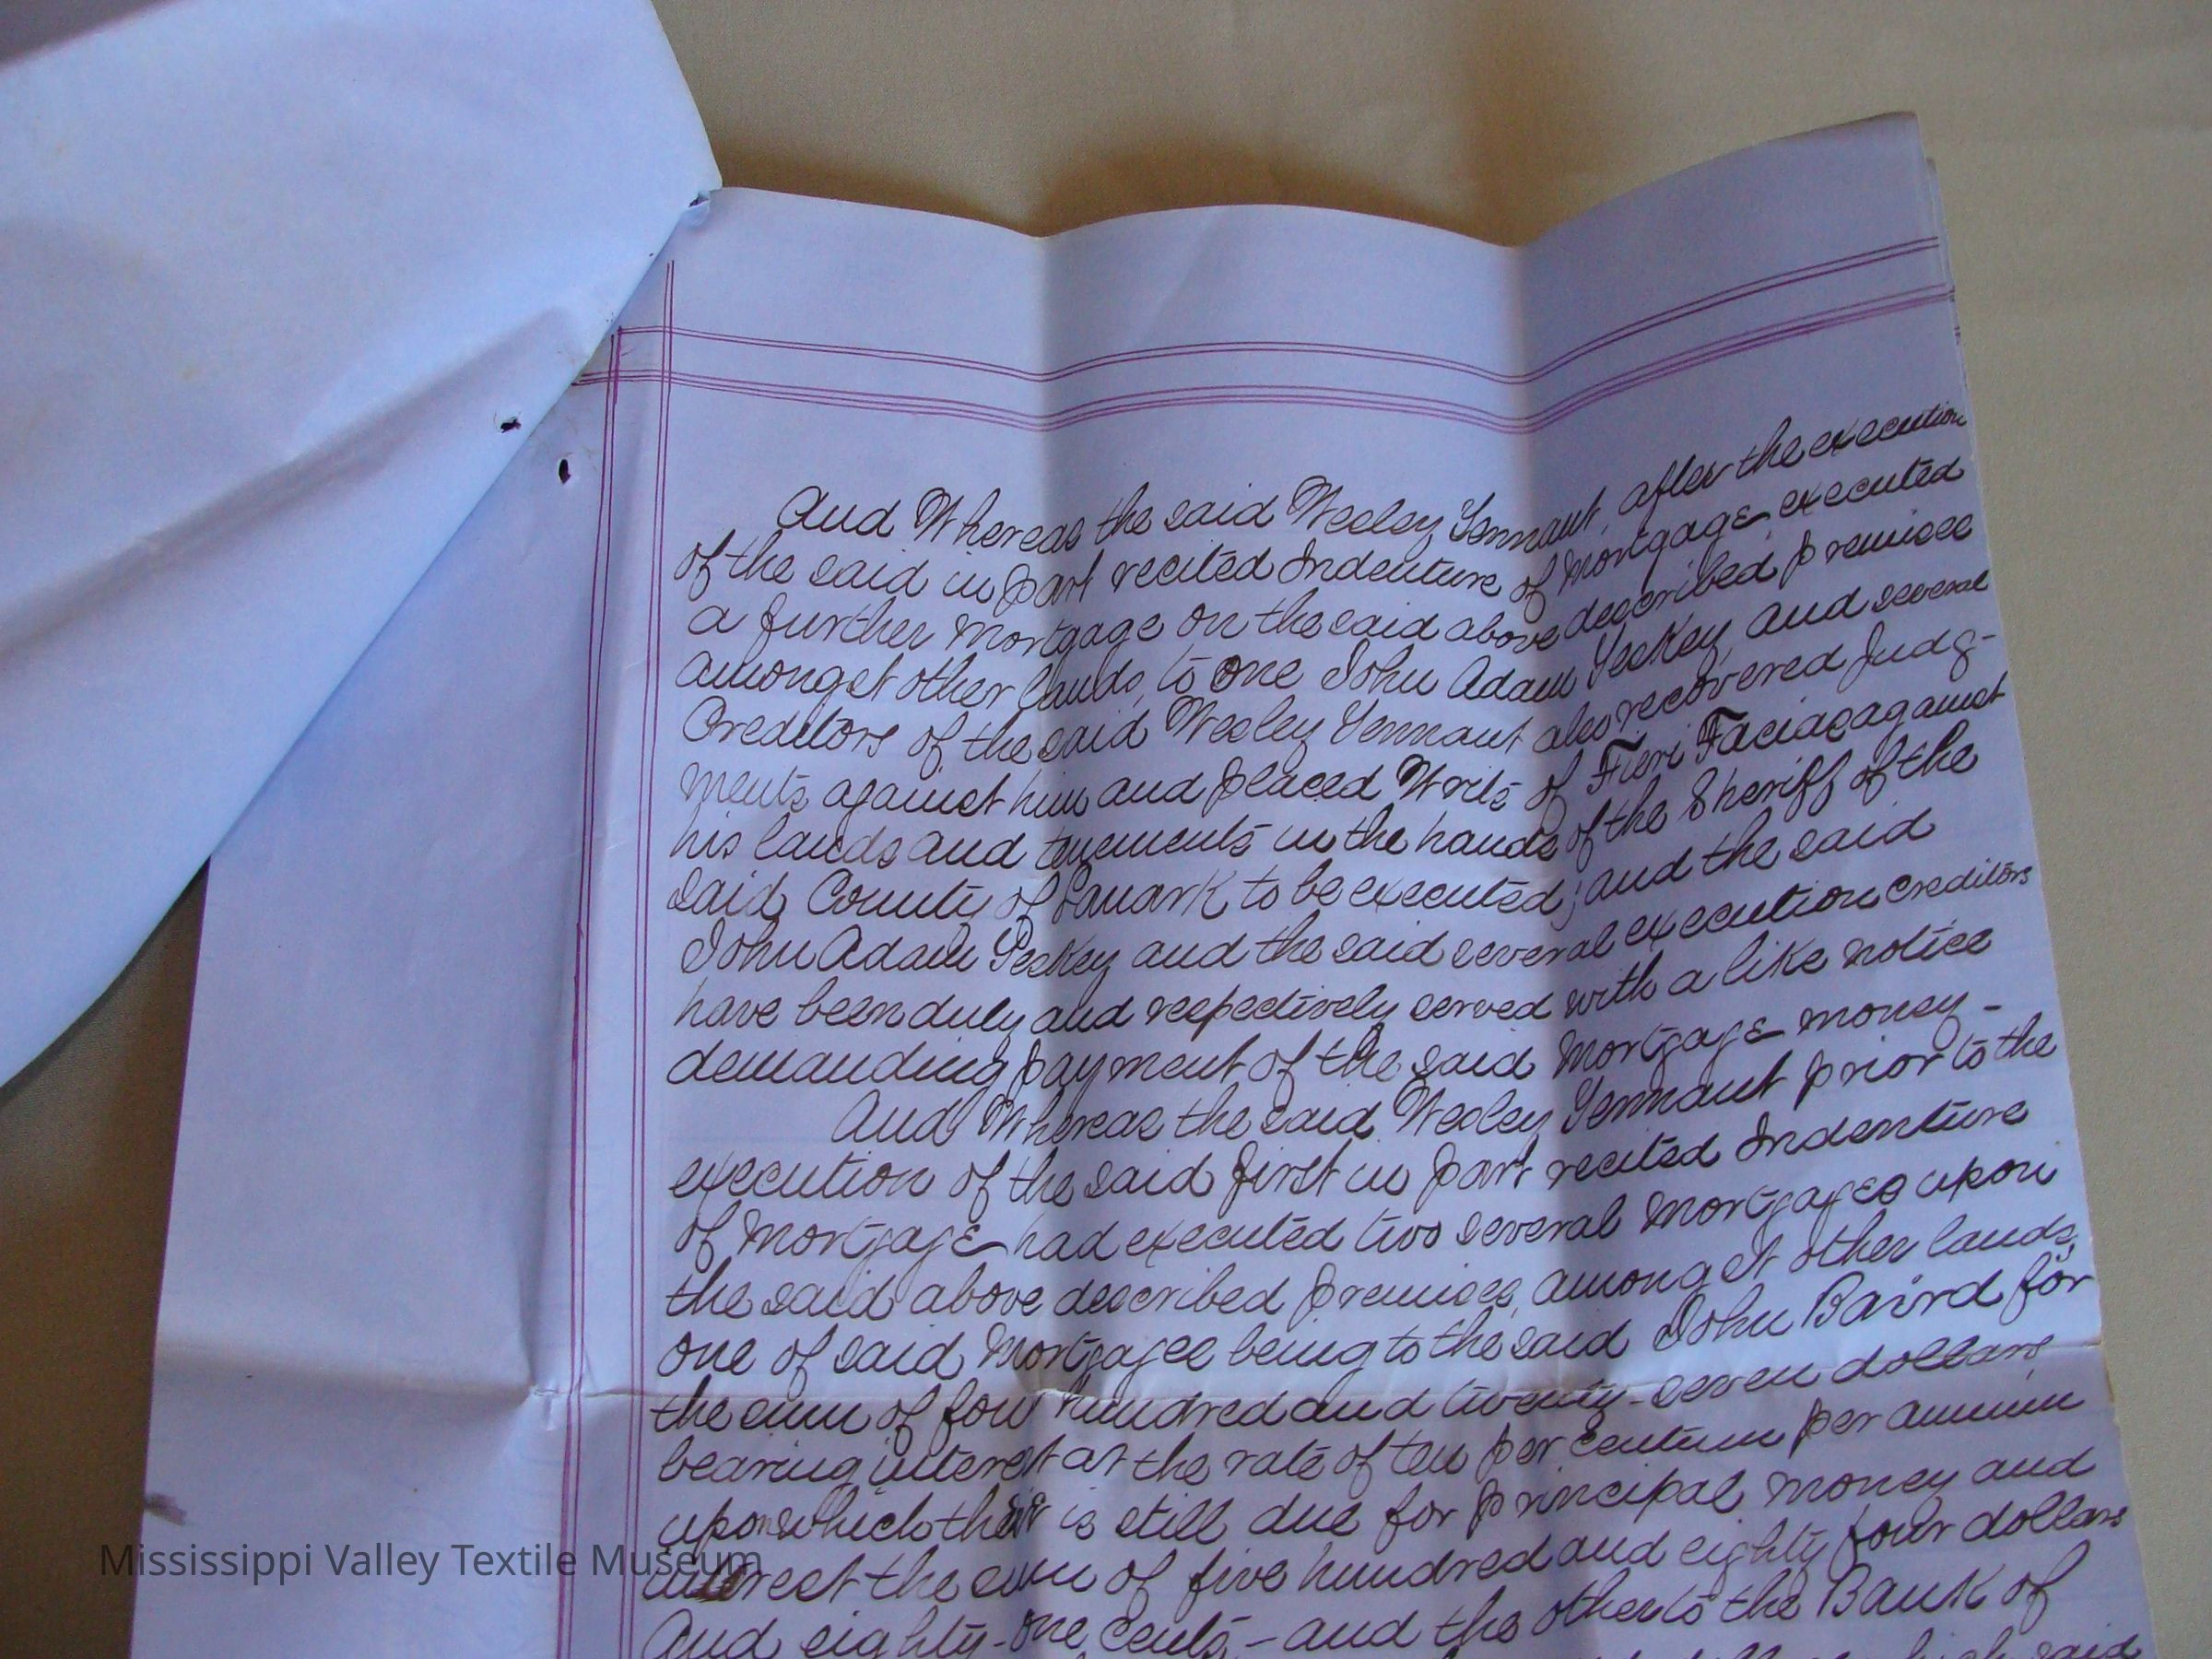 And Whereas the said Wesley Tennant, after the execution
of the said in part recited Indenture of Mortgage executed
a further Mortgage on the said above described premises
amongst other lands, to one John Adam Teskey, and several
Creditors of the said Wesley Tennant also recovered Judg-
ments against him and placed Writs of Fieri Facias against
his lands and tenements in the hands of the Sheriff of the
said County of Lanark to be executed; and the said
John Adam Teskey and the said several execution creditors
have been duly and respectively served with a like notice
demanding payment of the said Mortgage money -
And Whereas the said Wesley Tennant prior to the
execution of the said first in part recited Indenture
of Mortgage had executed two several Mortgages upon
the said above described premises, amongst other lands,
one of said Mortgages being to the said John Baird for
the sum of four hundred and twenty-seven dollars
bearing interest at the rate of ten per centum per annum
upon which there is still due for principal money and
interest the sum of five hundred and eighty four dollars
And eighty-one cents, - and the other to the Bank of
said
Mississippi Valley Textile Museum